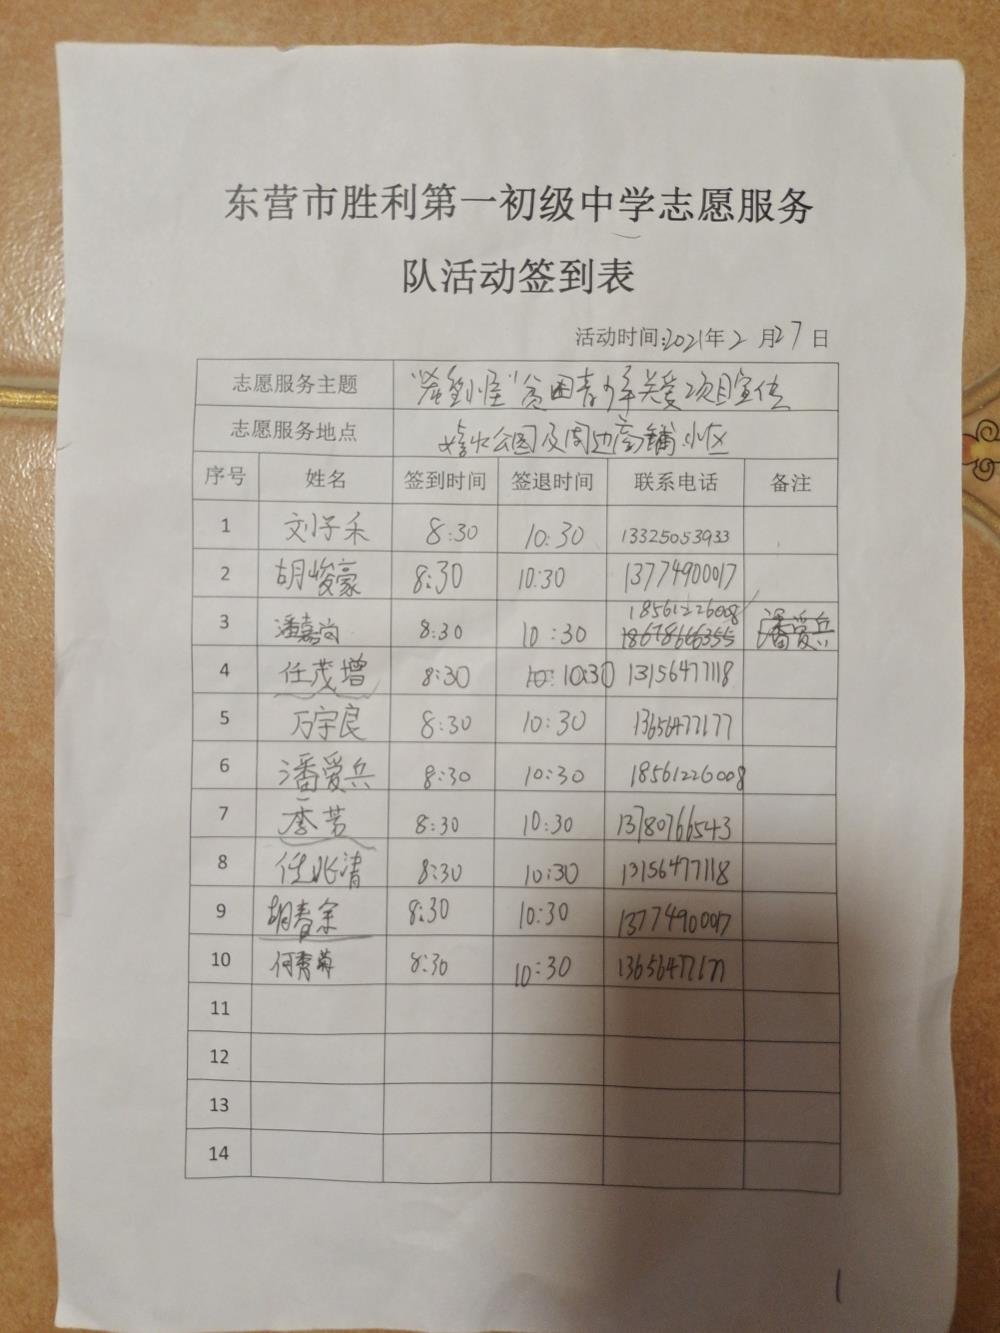 东营市胜利第一初级中学志愿服务
队活动签到表
活动时间:2021年2月27日
志愿服务主题 "希望小屋"贫困青少年关爱项目宣传
志愿服务地点 公园及周边商铺 小区
序号 姓名 签到时间 签退时间 联系电话 备注
1 刘子禾 8:30 10:30 13325053933
2 胡峻豪 8:30 10:30 13774900017
3 潘嘉尚 8:30 10:30 18561226008 潘爱兵
4 任茂增 8:30 10:30 13156477118
5 万宇良 8:30 10:30 13656477177
6 潘爱兵 8:30 10:30 18561226008
7 季芳 8:30 10:30 13780766543
8 任兆清 8:30 10:30 13156477118
9 胡春余 8:30 10:30 13774900017
10 何秀菊 8:30 10:30 13656477177
11
12
13
14